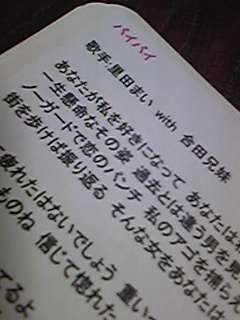 バイバイ
歌手:里田まい with 合田兄妹
あなたが私を好きになって あなたは
一生懸命なその姿 過去とは違う男を見
ノーガードで恋のパンチ 私のアゴを捕らえ
街を歩けば振り返る そんな女をあなたは
て疲れたはないでしょう 重い
ものね 信じて惚れた
てるよ